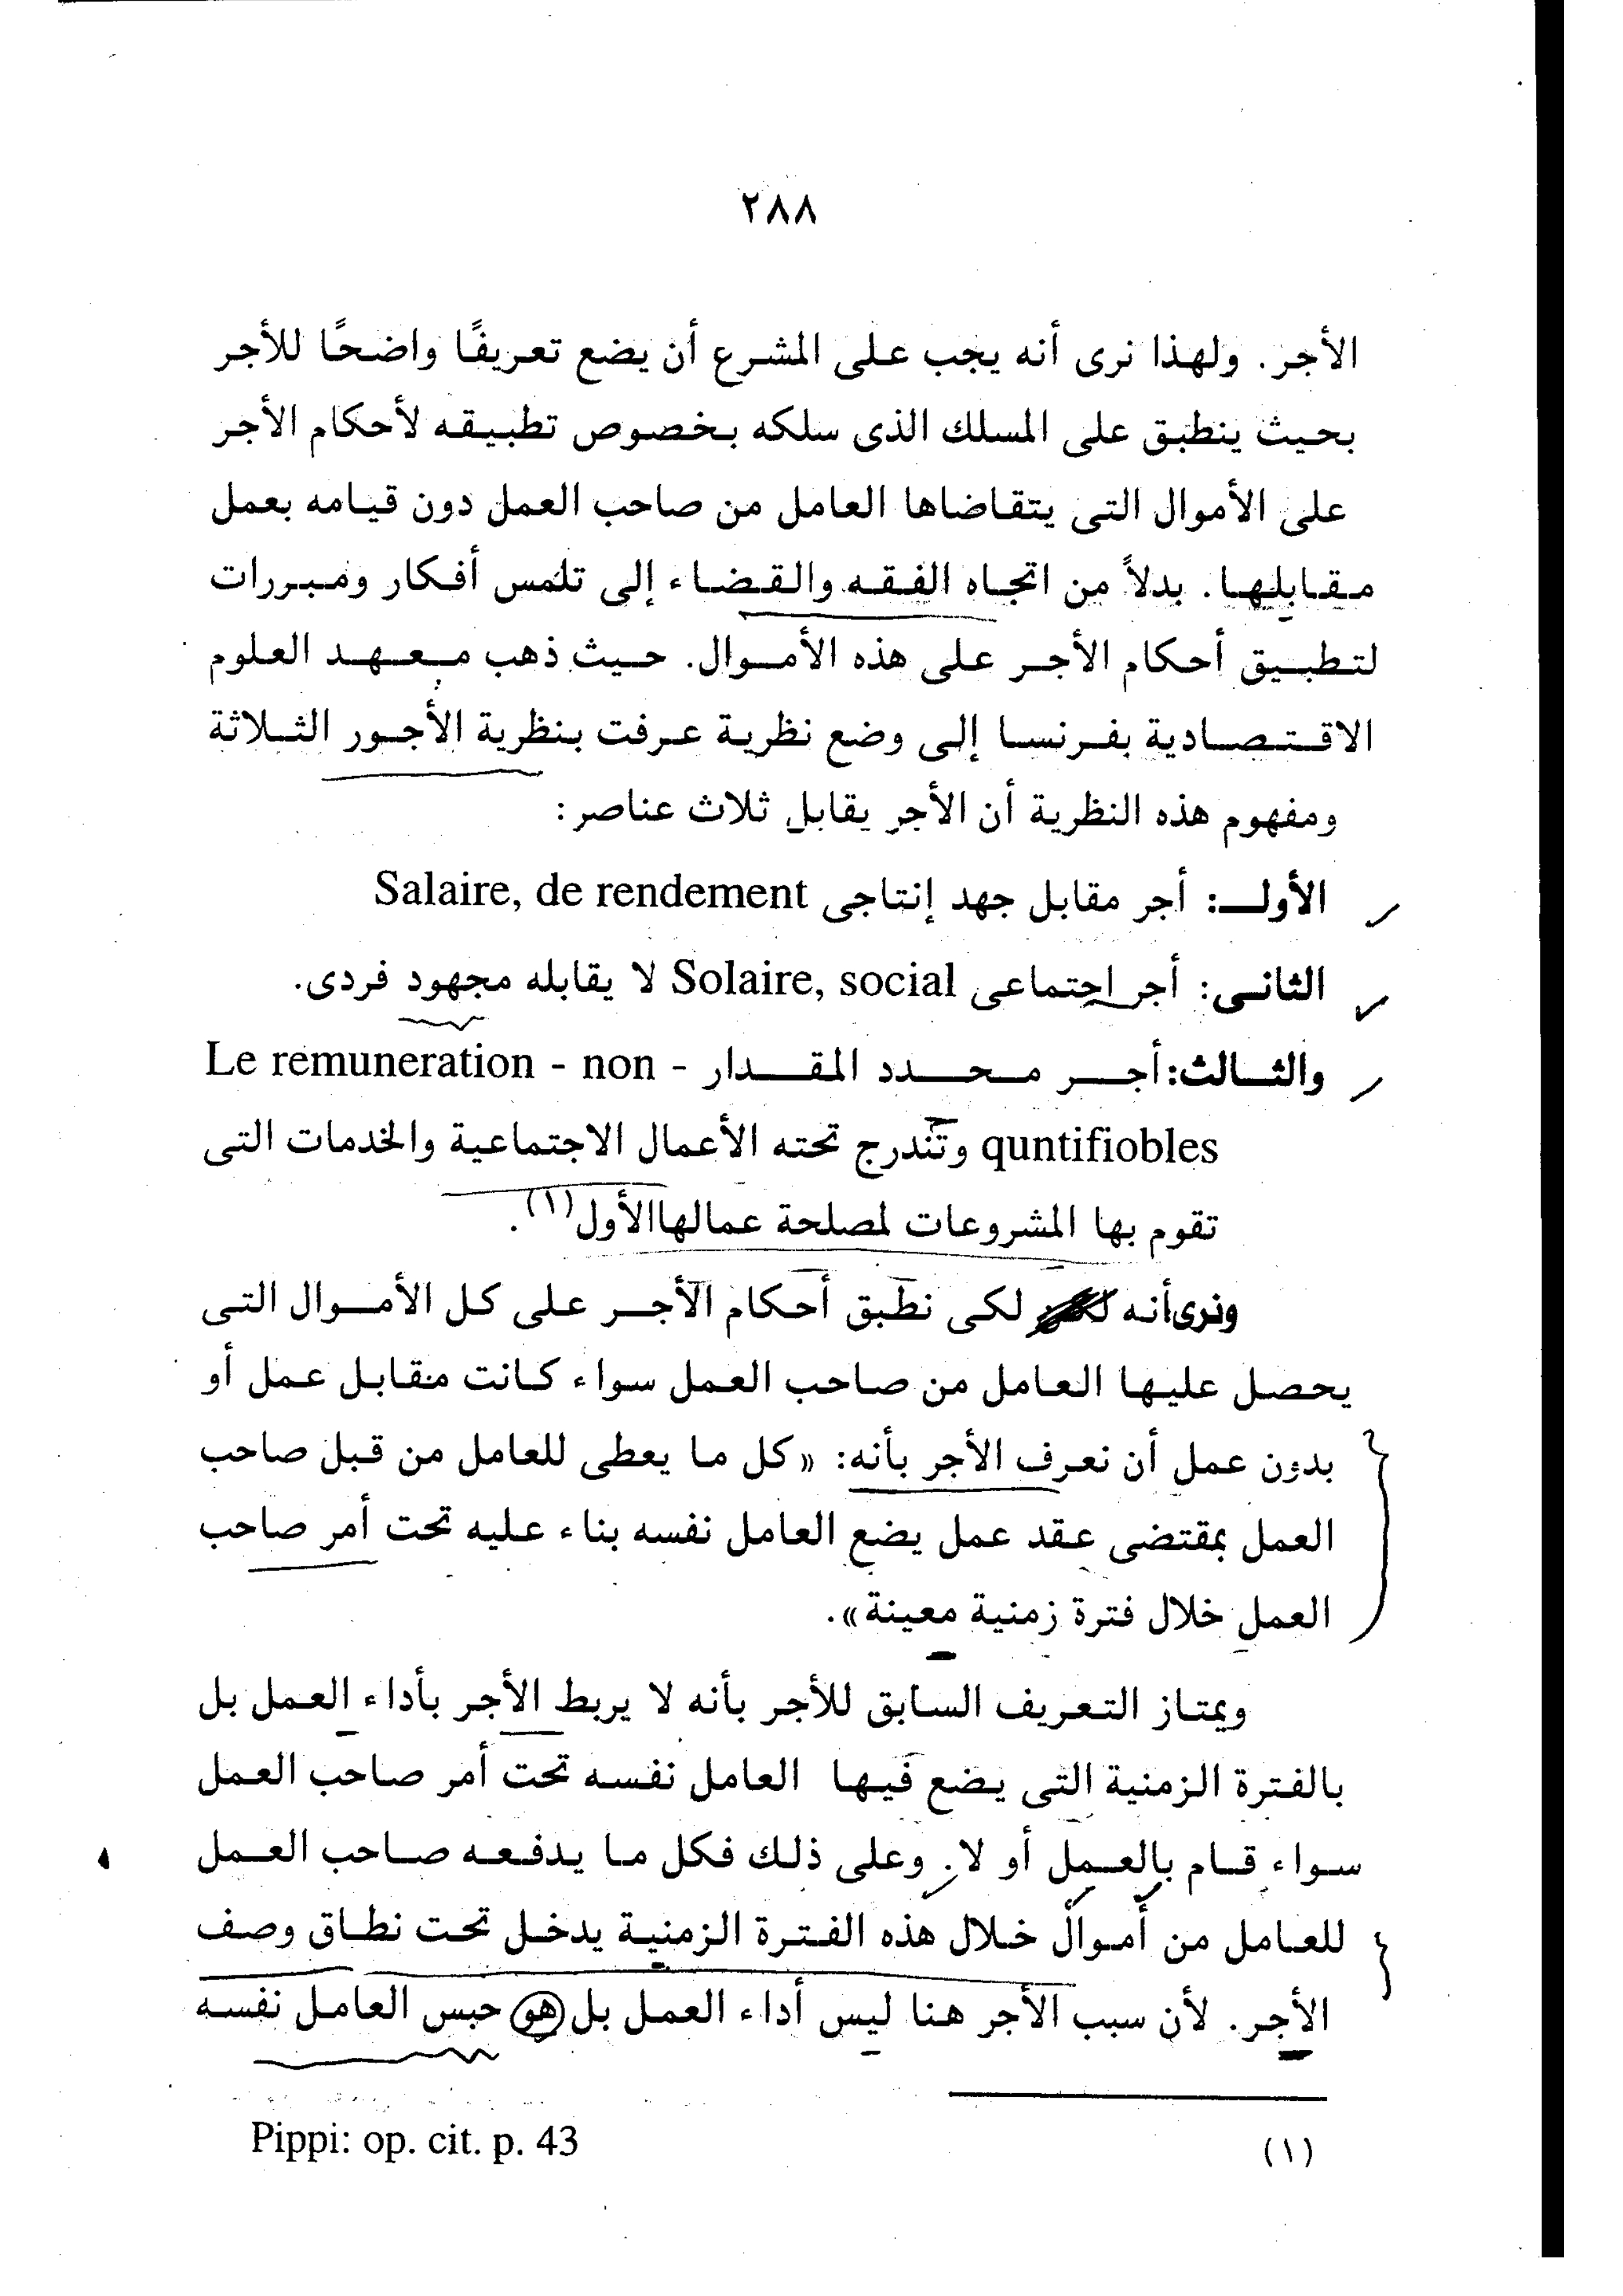 ٢٨٨
الأجر. ولهذا نرى أنه يجب على المشرع أن يضع تعريفًا واضحًا للأجر
بحيث ينطبق على المسلك الذى سلكه بخصوص تطبيقه لأحكام الأجر
على الأموال التى يتقاضاها العامل من صاحب العمل دون قيامه بعمل
مقابلها. بدلاً من اتجاه الفقه والقضاء إلى تلمس أفكار ومبررات
لتطبيق أحكام الأجر على هذه الأموال. حيث ذهب معهد العلوم
الاقتصادية بفرنسا إلى وضع نظرية عرفت بنظرية الأجور الثلاثة
ومفهوم هذه النظرية أن الأجر يقابل ثلاث عناصر:
الأول: أجر مقابل جهد إنتاجى Salaire, de rendement
الثانى: أجر اجتماعى Solaire, social لا يقابله مجهود فردى.
والثالث: أجر محدد المقدار - Le remuneration - non
quntifiobles وتندرج تحته الأعمال الاجتماعية والخدمات التى
تقوم بها المشروعات لمصلحة عمالهاالأول(١).
ونرى أنه لكى نطبق أحكام الأجر على كل الأموال التى
يحصل عليها العامل من صاحب العمل سواء كانت مقابل عمل أو
بدون عمل أن نعرف الأجر بأنه: «كل ما يعطى للعامل من قبل صاحب
العمل بمقتضى عقد عمل يضع العامل نفسه بناء عليه تحت أمر صاحب
العمل خلال فترة زمنية معينة».
ويمتاز التعريف السابق للأجر بأنه لا يربط الأجر بأداء العمل بل
بالفترة الزمنية التى يضع فيها العامل نفسه تحت أمر صاحب العمل
سواء قام بالعمل أو لا. وعلى ذلك فكل ما يدفعه صاحب العمل
للعامل من أموال خلال هذه الفترة الزمنية يدخل تحت نطاق وصف
الأجر. لأن سبب الأجر هنا ليس أداء العمل بل هو حبس العامل نفسه
(١) Pippi: op. cit. p. 43